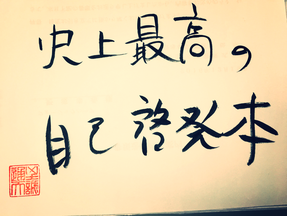 史上最高の
自己啓発本